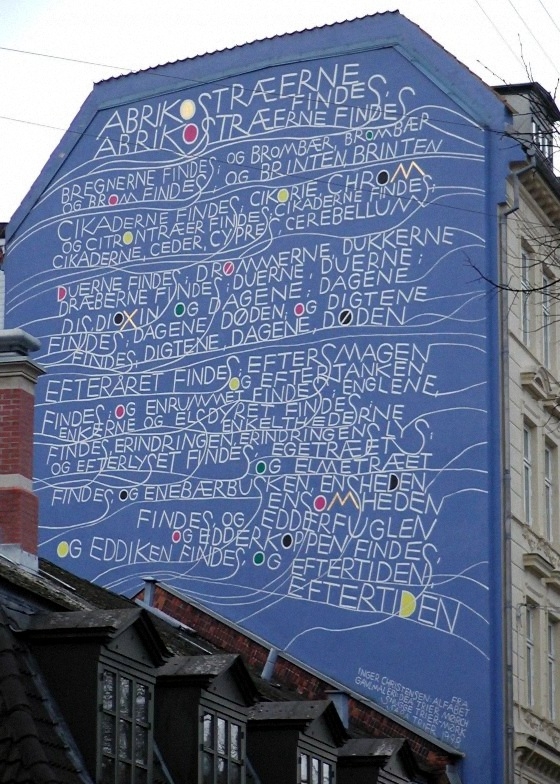 ABRIKOSTRÆERNE FINDES,
ABRIKOSTRÆERNE FINDES
BREGNERNE FINDES; OG BROMBÆR, BROMBÆR
OG BROM FINDES; OG BRINTEN, BRINTEN
CIKADERNE FINDES; CIKORIE, CHROM
OG CITRONTRÆER FINDES; CIKADERNE FINDES;
CIKADERNE, CEDER, CYPRES, CEREBELLUM
DUERNE FINDES; DRØMMERNE, DUKKERNE
DRÆBERNE FINDES; DUERNE, DUERNE;
DIS, DIOXIN OG DAGENE; DAGENE
FINDES; DAGENE DØDEN; OG DIGTENE
FINDES; DIGTENE, DAGENE, DØDEN
EFTERÅRET FINDES; EFTERSMAGEN
OG EFTERTANKEN
FINDES; OG ENRUMMET FINDES; ENGLENE,
ENKERNE OG ELSDYRET FINDES;
FINDES, ERINDRINGEN, ERINDRINGENS LYS;
OG EFTERLYSET FINDES; EGETRÆET
OG ELMETRÆET
FINDES; OG ENEBÆRBUSKEN, ENSHEDEN,
ENSOMHEDEN
FINDES; OG EDDERFUGLEN
OG EDDERKOPPEN FINDES,
OG EDDIKEN FINDES; OG EFTERTIDEN,
EFTERTIDEN
FRA
INGER CHRISTENSEN: ALFABET
GAVLMALERI: BEA TRIER MØRCH